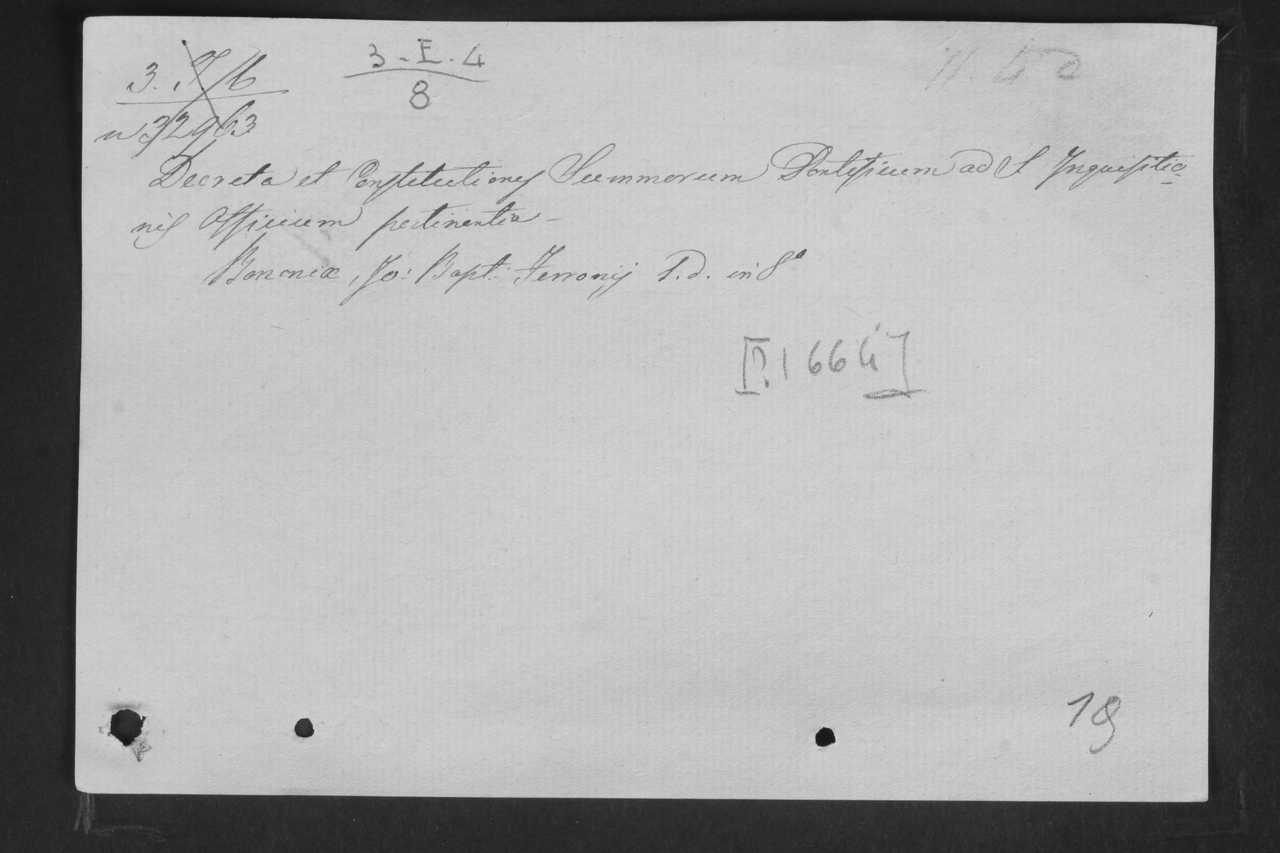 3-E.4
8
n 32963
Decreta et Constitutiones Summorum Pontificum ad S Inquisitio-
nis Officium pertinentia -
Bononiæ, Jo: Bapt: Ferronij S.d. in 8º
[?.1664]
18